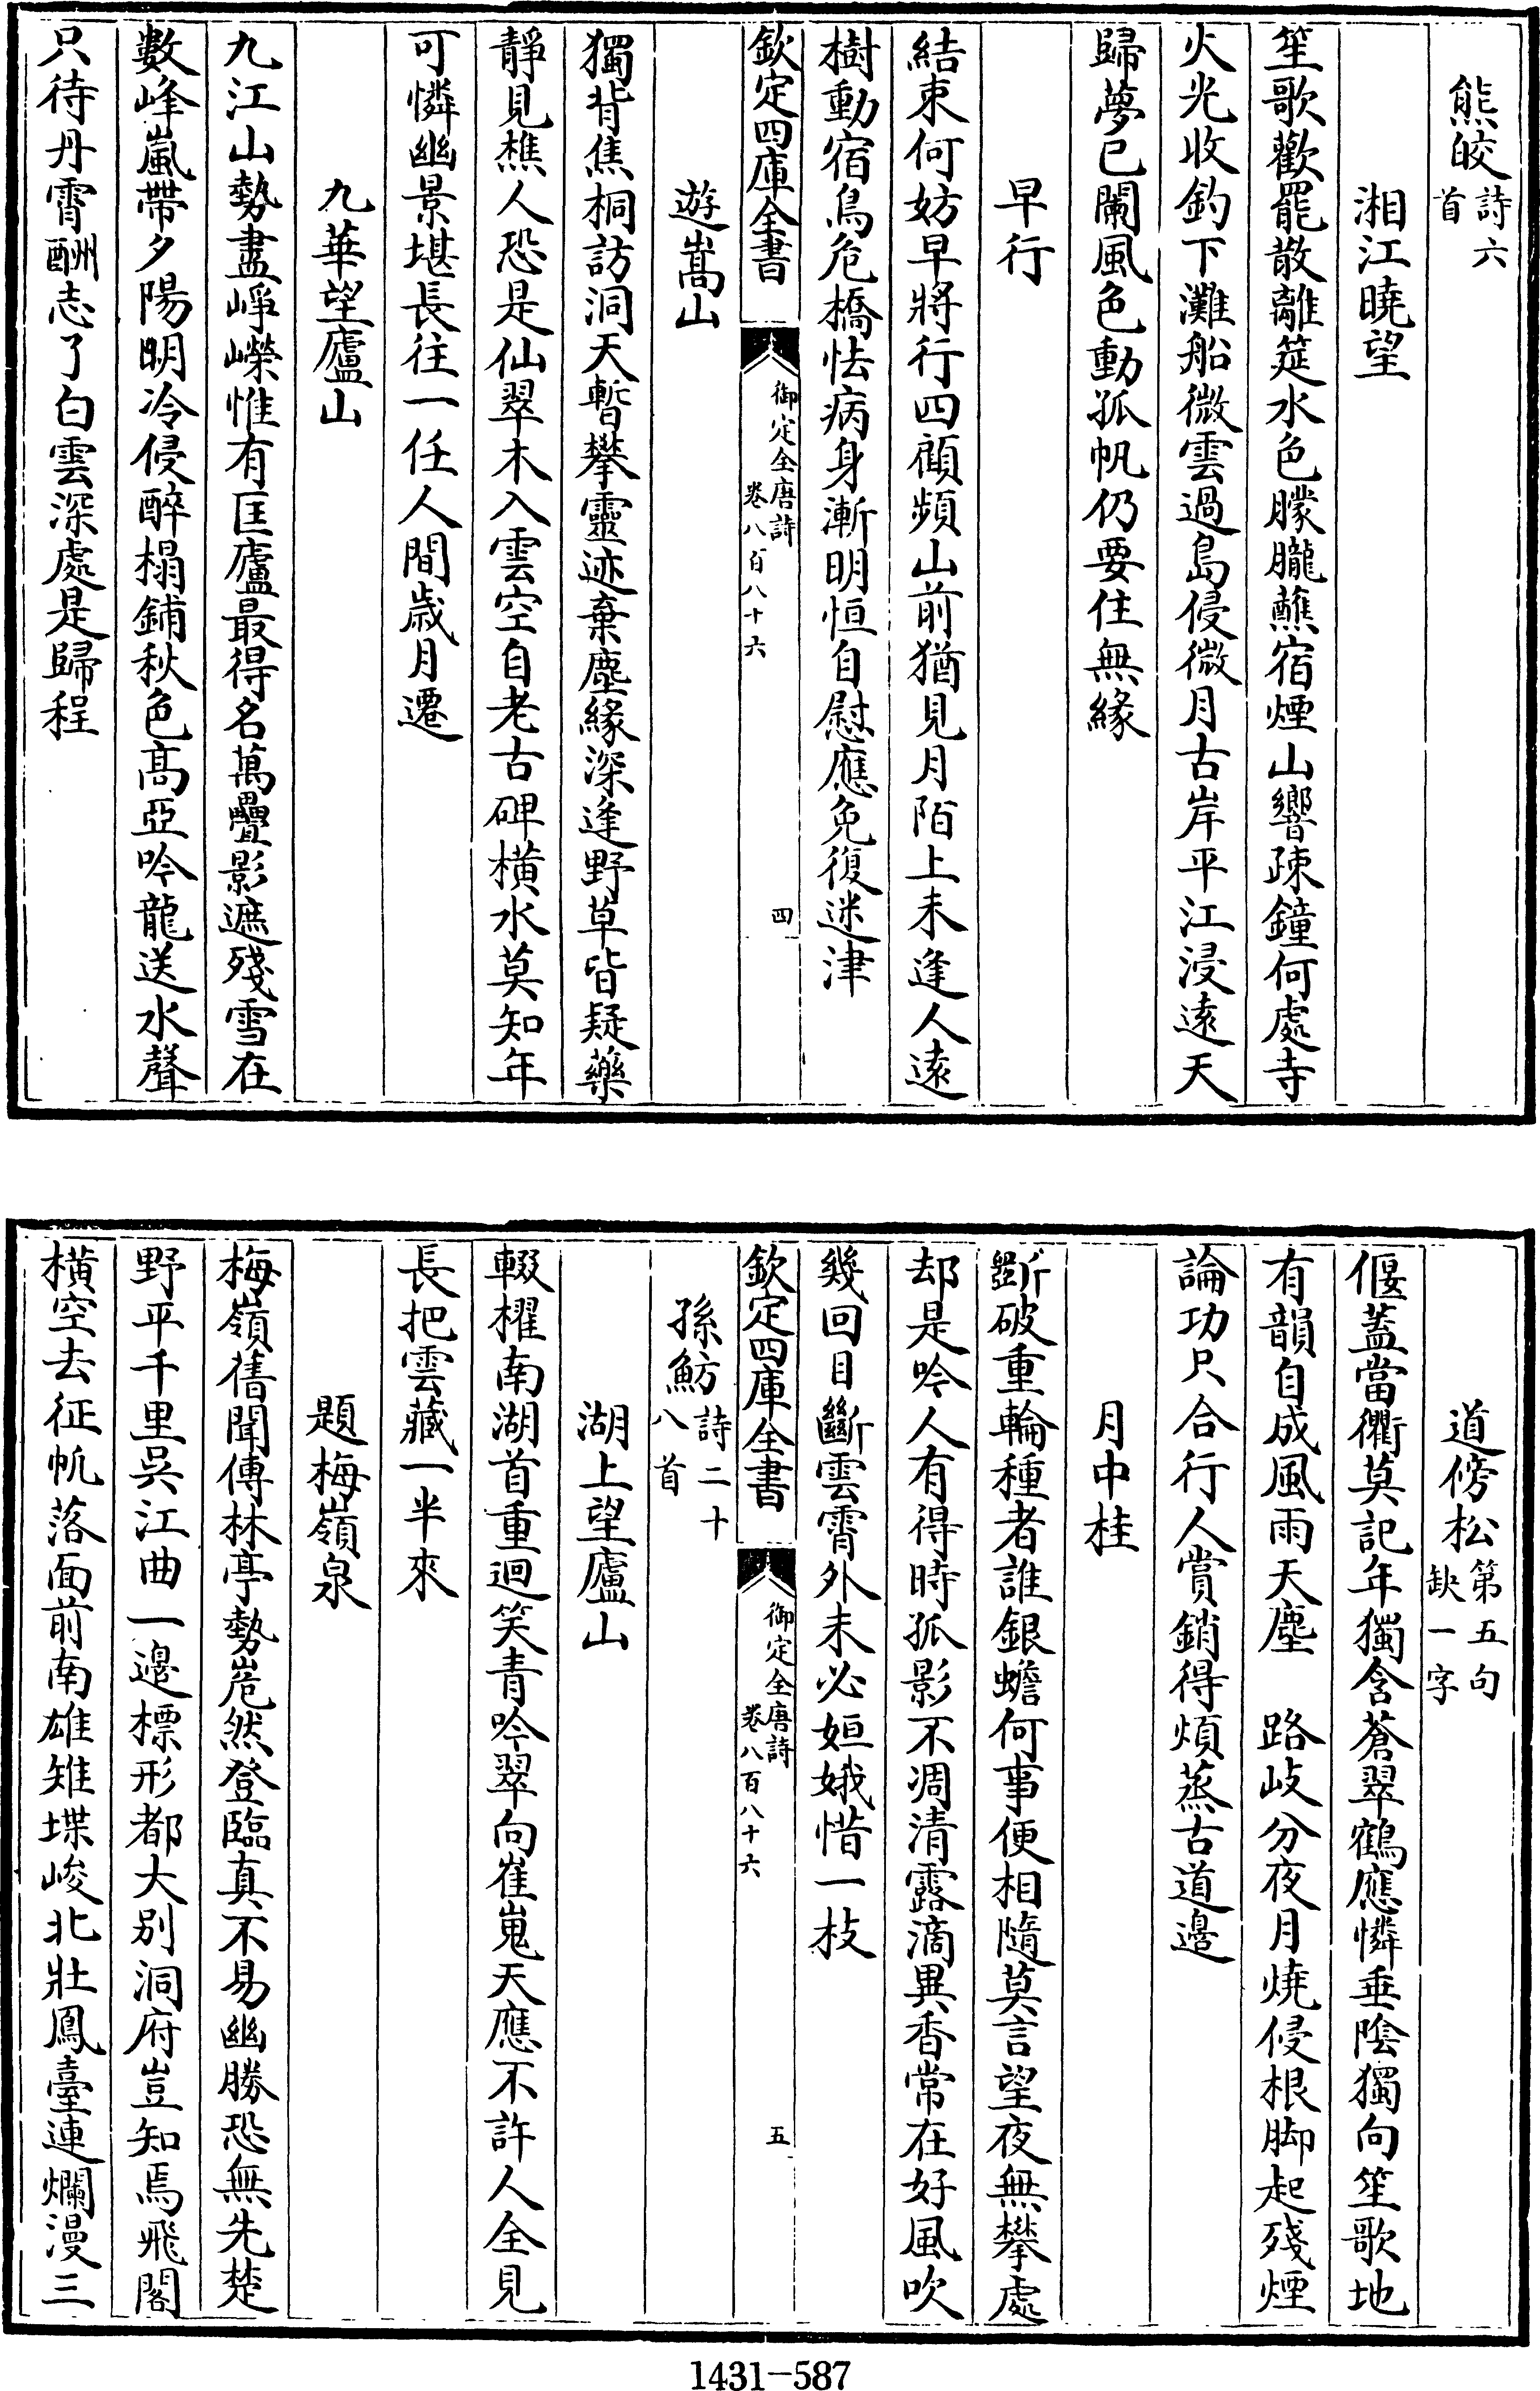 熊皎詩六首
湘江曉望
笙歌歡罷散離筵水色朦朧蘸宿煙山響疎鐘何處寺
火光收釣下灘船微雲過島侵微月古岸平江浸遠天
歸夢已闌風色動孤帆仍要住無緣
早行
結束何妨早將行四顧頻山前猶見月陌上未逢人遠
樹動宿鳥危橋怯病身漸明恒自慰應免復迷津
欽定四庫全書
御定全唐詩
卷八百八十六
四
遊嵩山
獨背焦桐訪洞天暫攀靈迹棄塵緣深逢野草皆疑藥
靜見樵人恐是仙翠木入雲空自老古碑橫水莫知年
可憐幽景堪長往一任人間歲月遷
九華望廬山
九江山勢盡崢嶸惟有匡廬最得名萬疊影遮殘雪在
數峰嵐帶夕陽明冷侵醉榻鋪秋色高亞吟龍送水聲
只待丹霄酬志了白雲深處是歸程
道傍松第五句缺一字
偃蓋當衢莫記年獨含蒼翠鶴應憐垂陰獨向笙歌地
有韻自成風雨天塵　路歧分夜月燒侵根脚起殘煙
論功只合行人賞銷得煩蒸古道邊
月中桂
斷破重輪種者誰銀蟾何事便相隨莫言望夜無攀處
却是吟人有得時孤影不凋清露滴異香常在好風吹
幾回目斷雲霄外未必姮娥惜一枝
欽定四庫全書
御定全唐詩
卷八百八十六
五
孫魴詩二十八首
湖上望廬山
輟櫂南湖首重迴笑青吟翠向崔嵬天應不許人全見
長把雲藏一半來
題梅嶺泉
梅嶺舊聞傳林亭勢嵬然登臨真不易幽勝恐無先楚
野平千里吳江曲一邊標形都大别洞府豈知焉飛閣
橫空去征帆落面前南雄雉堞峻北壯鳳臺連爛漫三
1431-587